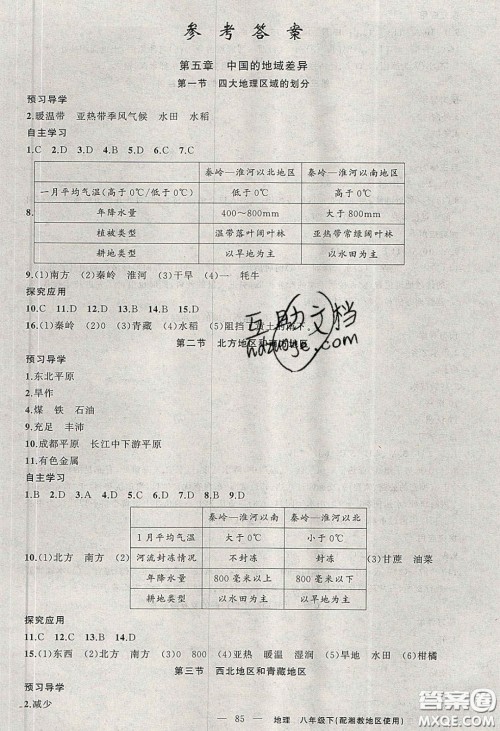 参考答案
第五章 中国的地域差异
第一节 四大地理区域的划分
预习导学
2.暖温带 亚热带季风气候 水田 水稻
自主学习
1.C 2.D 3.A 4.D 5.C 6.D 7.C
8.
秦岭—淮河以北地区 秦岭—淮河以南地区
一月平均气温(高于0℃/低于0℃) 低于0℃ 高于0℃
年降水量 400~800mm 大于800mm
植被类型 温带落叶阔叶林 亚热带常绿阔叶林
耕地类型 以旱地为主 以水田为主
9.(1)南方 (2)秦岭 淮河 (3)干旱 (4)一 牦牛
探究应用
10.C 11.D 12.C 13.D 14.D 15.D
16.(1)秦岭 (2)0 (3)青藏 (4)水稻 (5)阻挡
第二节 北方地区和南方地区
预习导学
1.东北平原
2.旱作
4.煤 铁 石油
9.充足 丰沛
10.成都平原 长江中下游平原
11.有色金属
自主学习
1.B 2.D 3.A 4.D 5.C 6.D 7.D 8.D 9.D
秦岭—淮河以南 秦岭—淮河以北
1月平均气温 大于0℃ 小于0℃
10.(1)北方 南方 (2) 河流封冻情况 不封冻 封冻 (3)甘蔗 油菜
年降水量 800毫米以上 800毫米以下
耕地类型 以水田为主 以旱地为主
探究应用
11.C 12.C 13.B 14.D
15.(1)东西 (2)北方 南方 (3)0 800 (4)亚热 暖温 湿润 (5)旱地 水田 (6)柑橘
第三节 西北地区和青藏地区
预习导学
2.减少
— 85 — 地理 八年级下(配湘教地区使用)
互助文档
huzuoye.com
答案圈
MXQE.COM